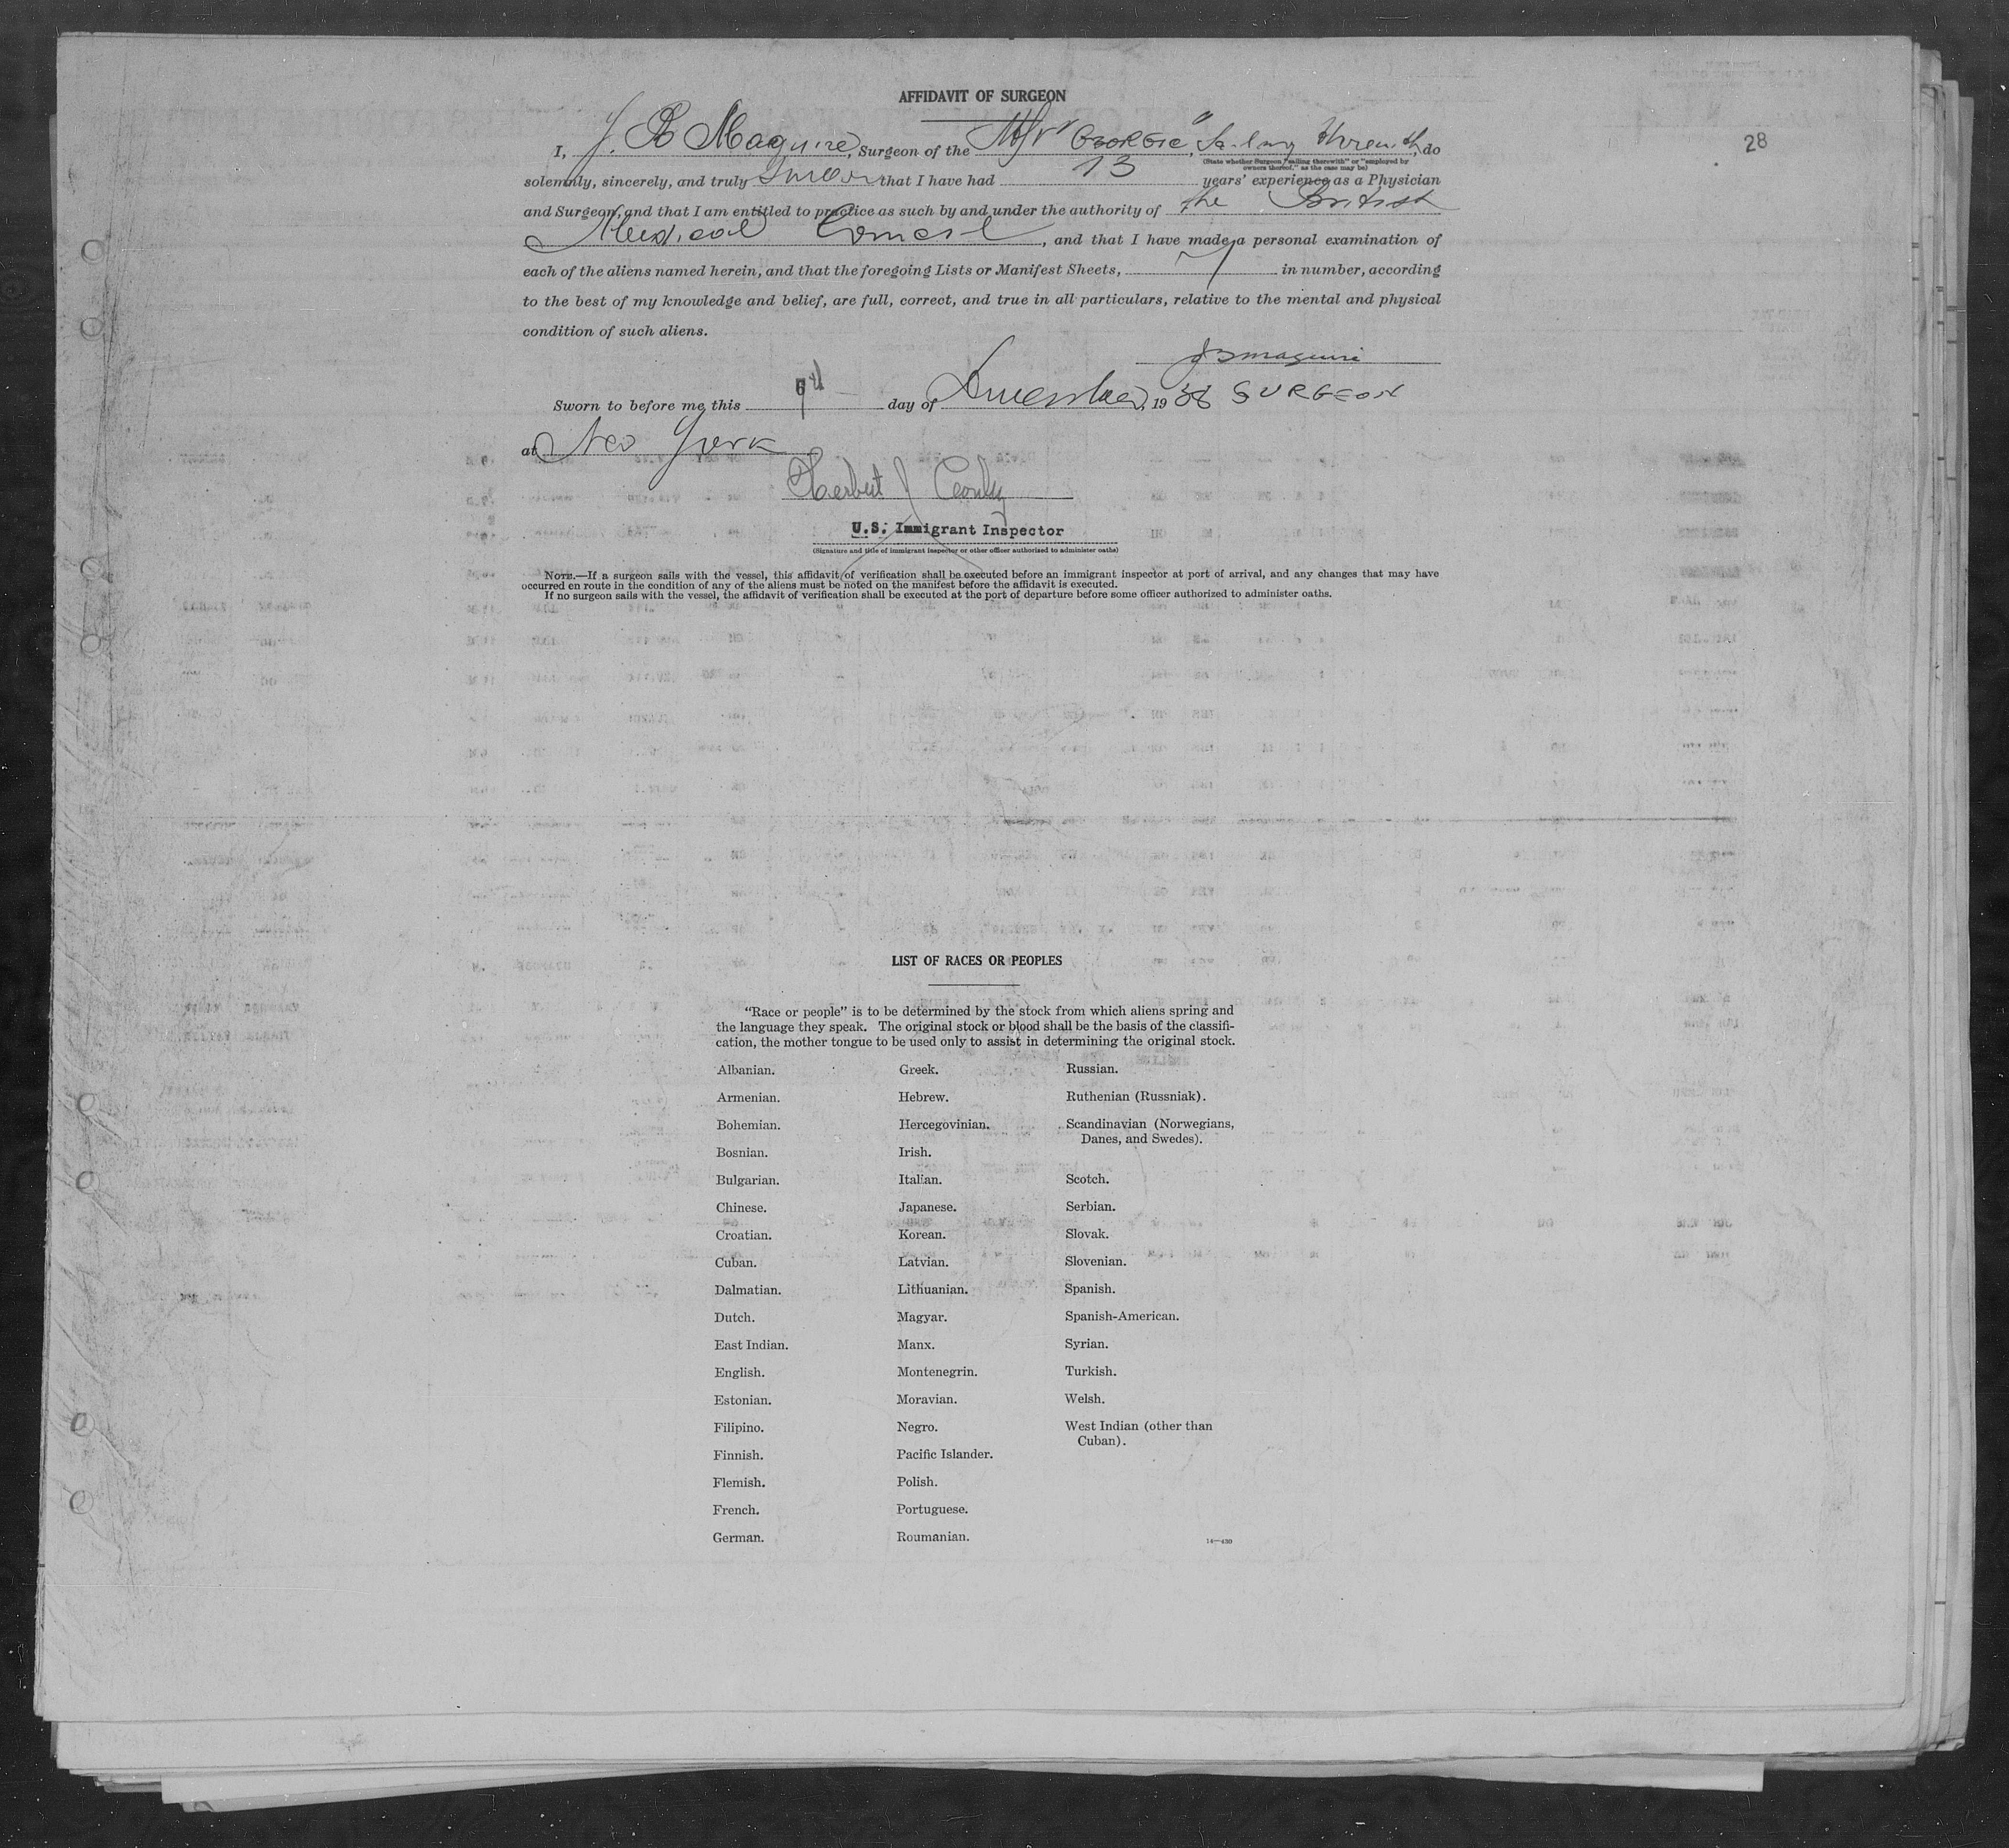 AFFIDAVIT OF SURGEON
28
I, J. B Maguire, Surgeon of the M/V "Georgic", Sailing therewith, do
(State whether Surgeon "sailing therewith" or "employed by
owners thereof," as the case may be)
solemnly, sincerely, and truly swear that I have had 13 years' experience as a Physician
and Surgeon, and that I am entitled to practice as such by and under the authority of the British
Medical Council, and that I have made a personal examination of
each of the aliens named herein, and that the foregoing Lists or Manifest Sheets, 7 in number, according
to the best of my knowledge and belief, are full, correct, and true in all particulars, relative to the mental and physical
condition of such aliens.
J B Maguire
Sworn to before me this day of November, 1938 SURGEON
at New York
Herbert J
U.S. Immigrant Inspector
(Signature and title of immigrant inspector or other officer authorized to administer oaths)
NOTE.—If a surgeon sails with the vessel, this affidavit of verification shall be executed before an immigrant inspector at port of arrival, and any changes that may have
occurred en route in the condition of any of the aliens must be noted on the manifest before the affidavit is executed.
If no surgeon sails with the vessel, the affidavit of verification shall be executed at the port of departure before some officer authorized to administer oaths.
LIST OF RACES OR PEOPLES
"Race or people" is to be determined by the stock from which aliens spring and
the language they speak. The original stock or blood shall be the basis of the classifi-
cation, the mother tongue to be used only to assist in determining the original stock.
Albanian.
Armenian.
Bohemian.
Bosnian.
Bulgarian.
Chinese.
Croatian.
Cuban.
Dalmatian.
Dutch.
East Indian.
English.
Estonian.
Filipino.
Finnish.
Flemish.
French.
German.
Greek.
Hebrew.
Hercegovinian.
Irish.
Italian.
Japanese.
Korean.
Latvian.
Lithuanian.
Magyar.
Manx.
Montenegrin.
Moravian.
Negro.
Pacific Islander.
Polish.
Portuguese.
Roumanian.
Russian.
Ruthenian (Russniak).
Scandinavian (Norwegians,
Danes, and Swedes).
Scotch.
Serbian.
Slovak.
Slovenian.
Spanish.
Spanish-American.
Syrian.
Turkish.
Welsh.
West Indian (other than
Cuban).
14—430